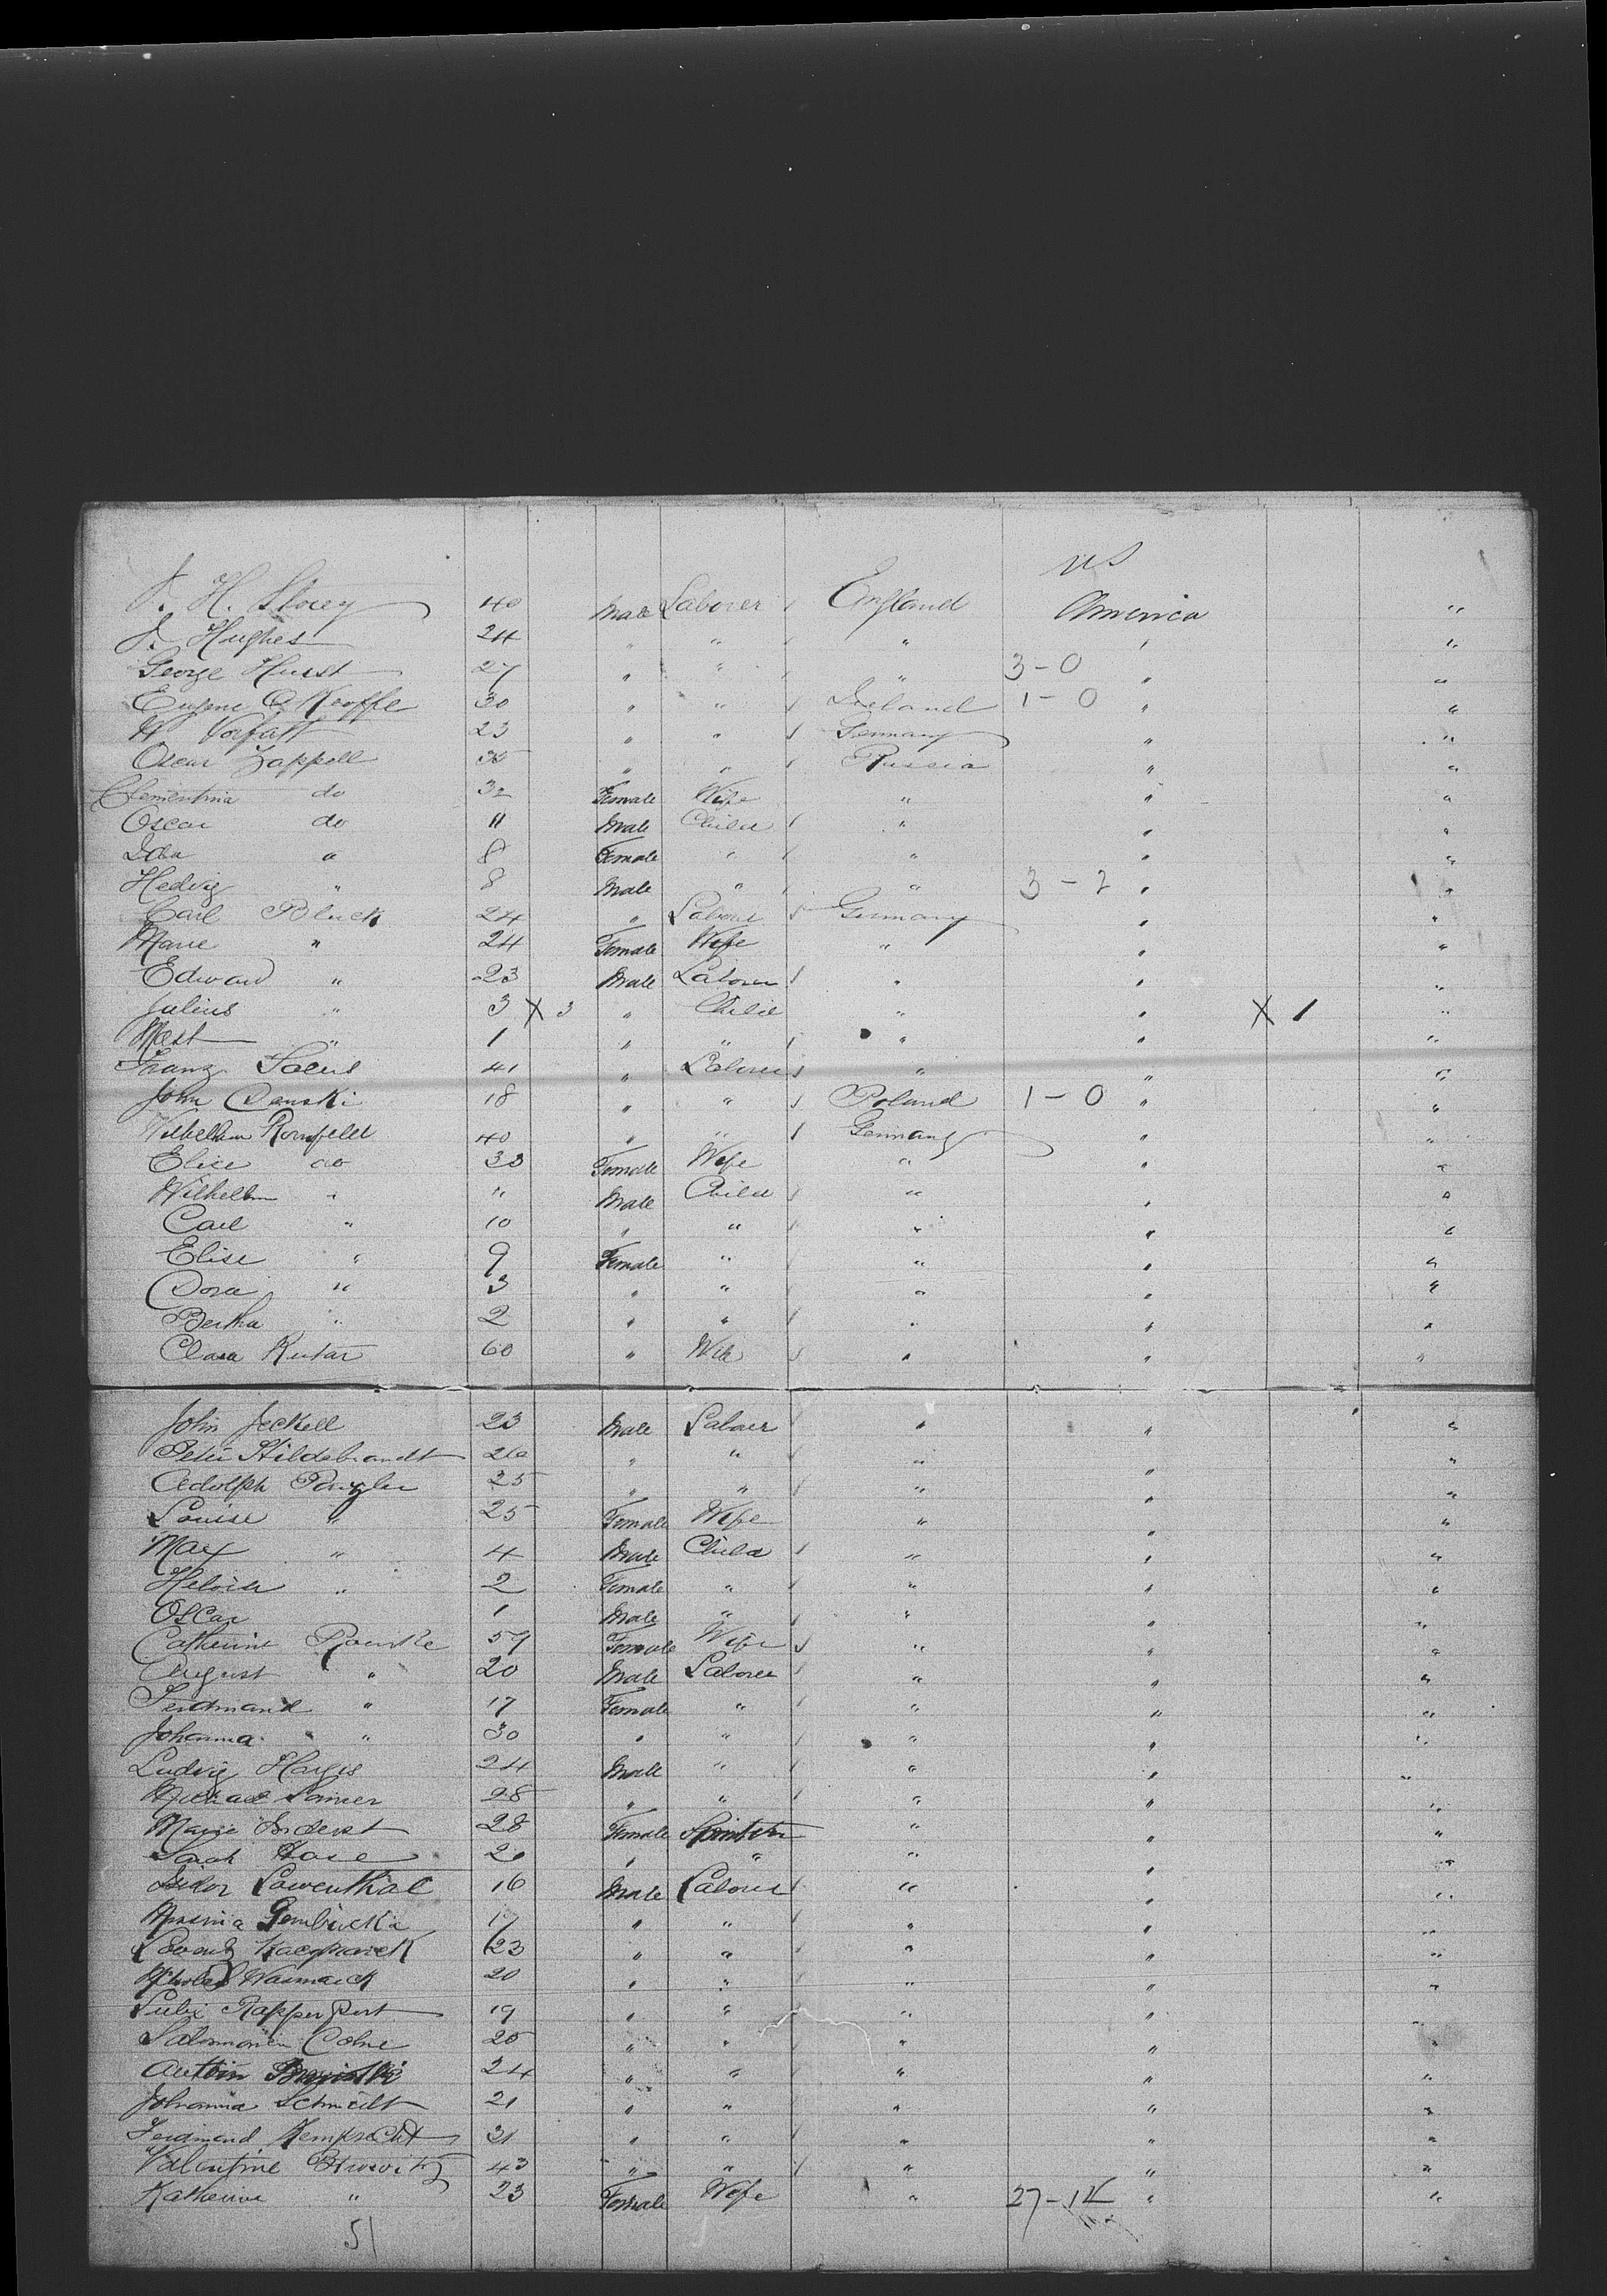 US
J. H. Storey 40 Male Laborer England America "
J. Hughes 24 " " " " "
George Hurst 27 " " " 3-0 " "
Eugene O'Keoffe 30 " " Ireland 1-0 " "
H 23 " " Germany " "
Oscar Zappell 35 " " Russia " "
Clementina do 32 Female Wife " " "
Oscar do 11 Male Child " " "
Ida " 8 Female " " " "
Hedvig " 8 Male " " 3-2 " "
Carl Pluck 24 " Laborer Germany " "
Marie " 24 Female Wife " " "
Edward " 23 Male Laborer " " "
Julius " 3 X 3 " Child " " X 1 "
" 1 " " " " "
Franz 41 " Laborer " " "
John Denski 18 " " Poland 1-0 " "
Wilhelm Romfeldt 40 " " Germany " "
Elise do 33 Female Wife " " "
Wilhelm " " Male Child " " "
Carl " 10 " " " " "
Elise " 9 Female " " " "
Dora " 3 " " " " "
Bertha " 2 " " " " "
Clara Kutar 60 " Wife " " "
John Jeckell 23 Male Laborer " " "
Peter Hildebrandt 26 " " " " "
Adolph 25 " " " " "
Louise " 25 Female Wife " " "
Max " 4 Male Child " " "
Heloise " 2 Female " " " "
Oscar 1 Male " " " "
Catherine 59 Female Wife " " "
August " 20 Male Laborer " " "
Ferdinand " 17 Female " " " "
Johanna " 30 " " " " "
Ludvig Hayes 24 Male " " " "
Michael 28 " " " " "
Marie 28 Female Spinster " " "
Sarah Hase 20 " " " " "
Isidor Lowenthal 16 Male Laborer " " "
Gembicka 17 " " " " "
23 " " " " "
Wasmack 20 " " " " "
Rapperport 19 " " " " "
Cohne 25 " " " " "
24 " " " " "
Johanna Schmidt 21 " " " " "
Ferdinand Kemprecht 31 " " " " "
Valentine 43 " " " " "
Katherine " 23 Female Wife " 27-12 " "
51